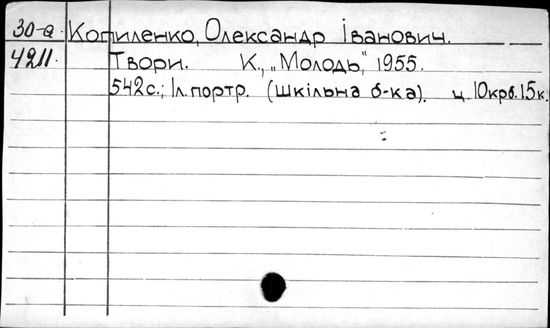 30-а Копиленко, Олександр Іванович.
4211. Твори. К., „Молодь", 1955.
542с.; 1л.портр. (Шкільна б-ка). ц.10крб.15к.